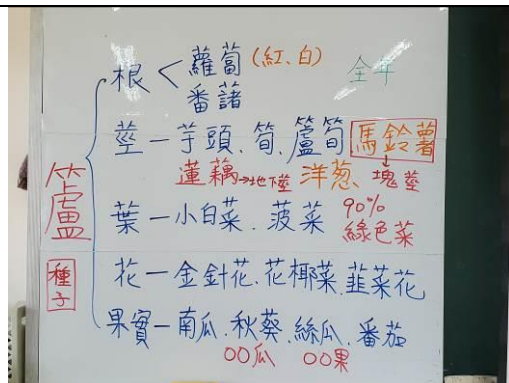 根 < 蘿蔔 (紅、白) 全年
番藷
莖 - 芋頭、筍、蘆筍 馬鈴薯
蓮藕→地下莖 洋蔥 ↓塊莖
葉 - 小白菜、菠菜 90%
綠色菜
花 - 金針花、花椰菜、韭菜花
種子
果實 - 南瓜、秋葵、絲瓜、番茄
OO瓜 OO果